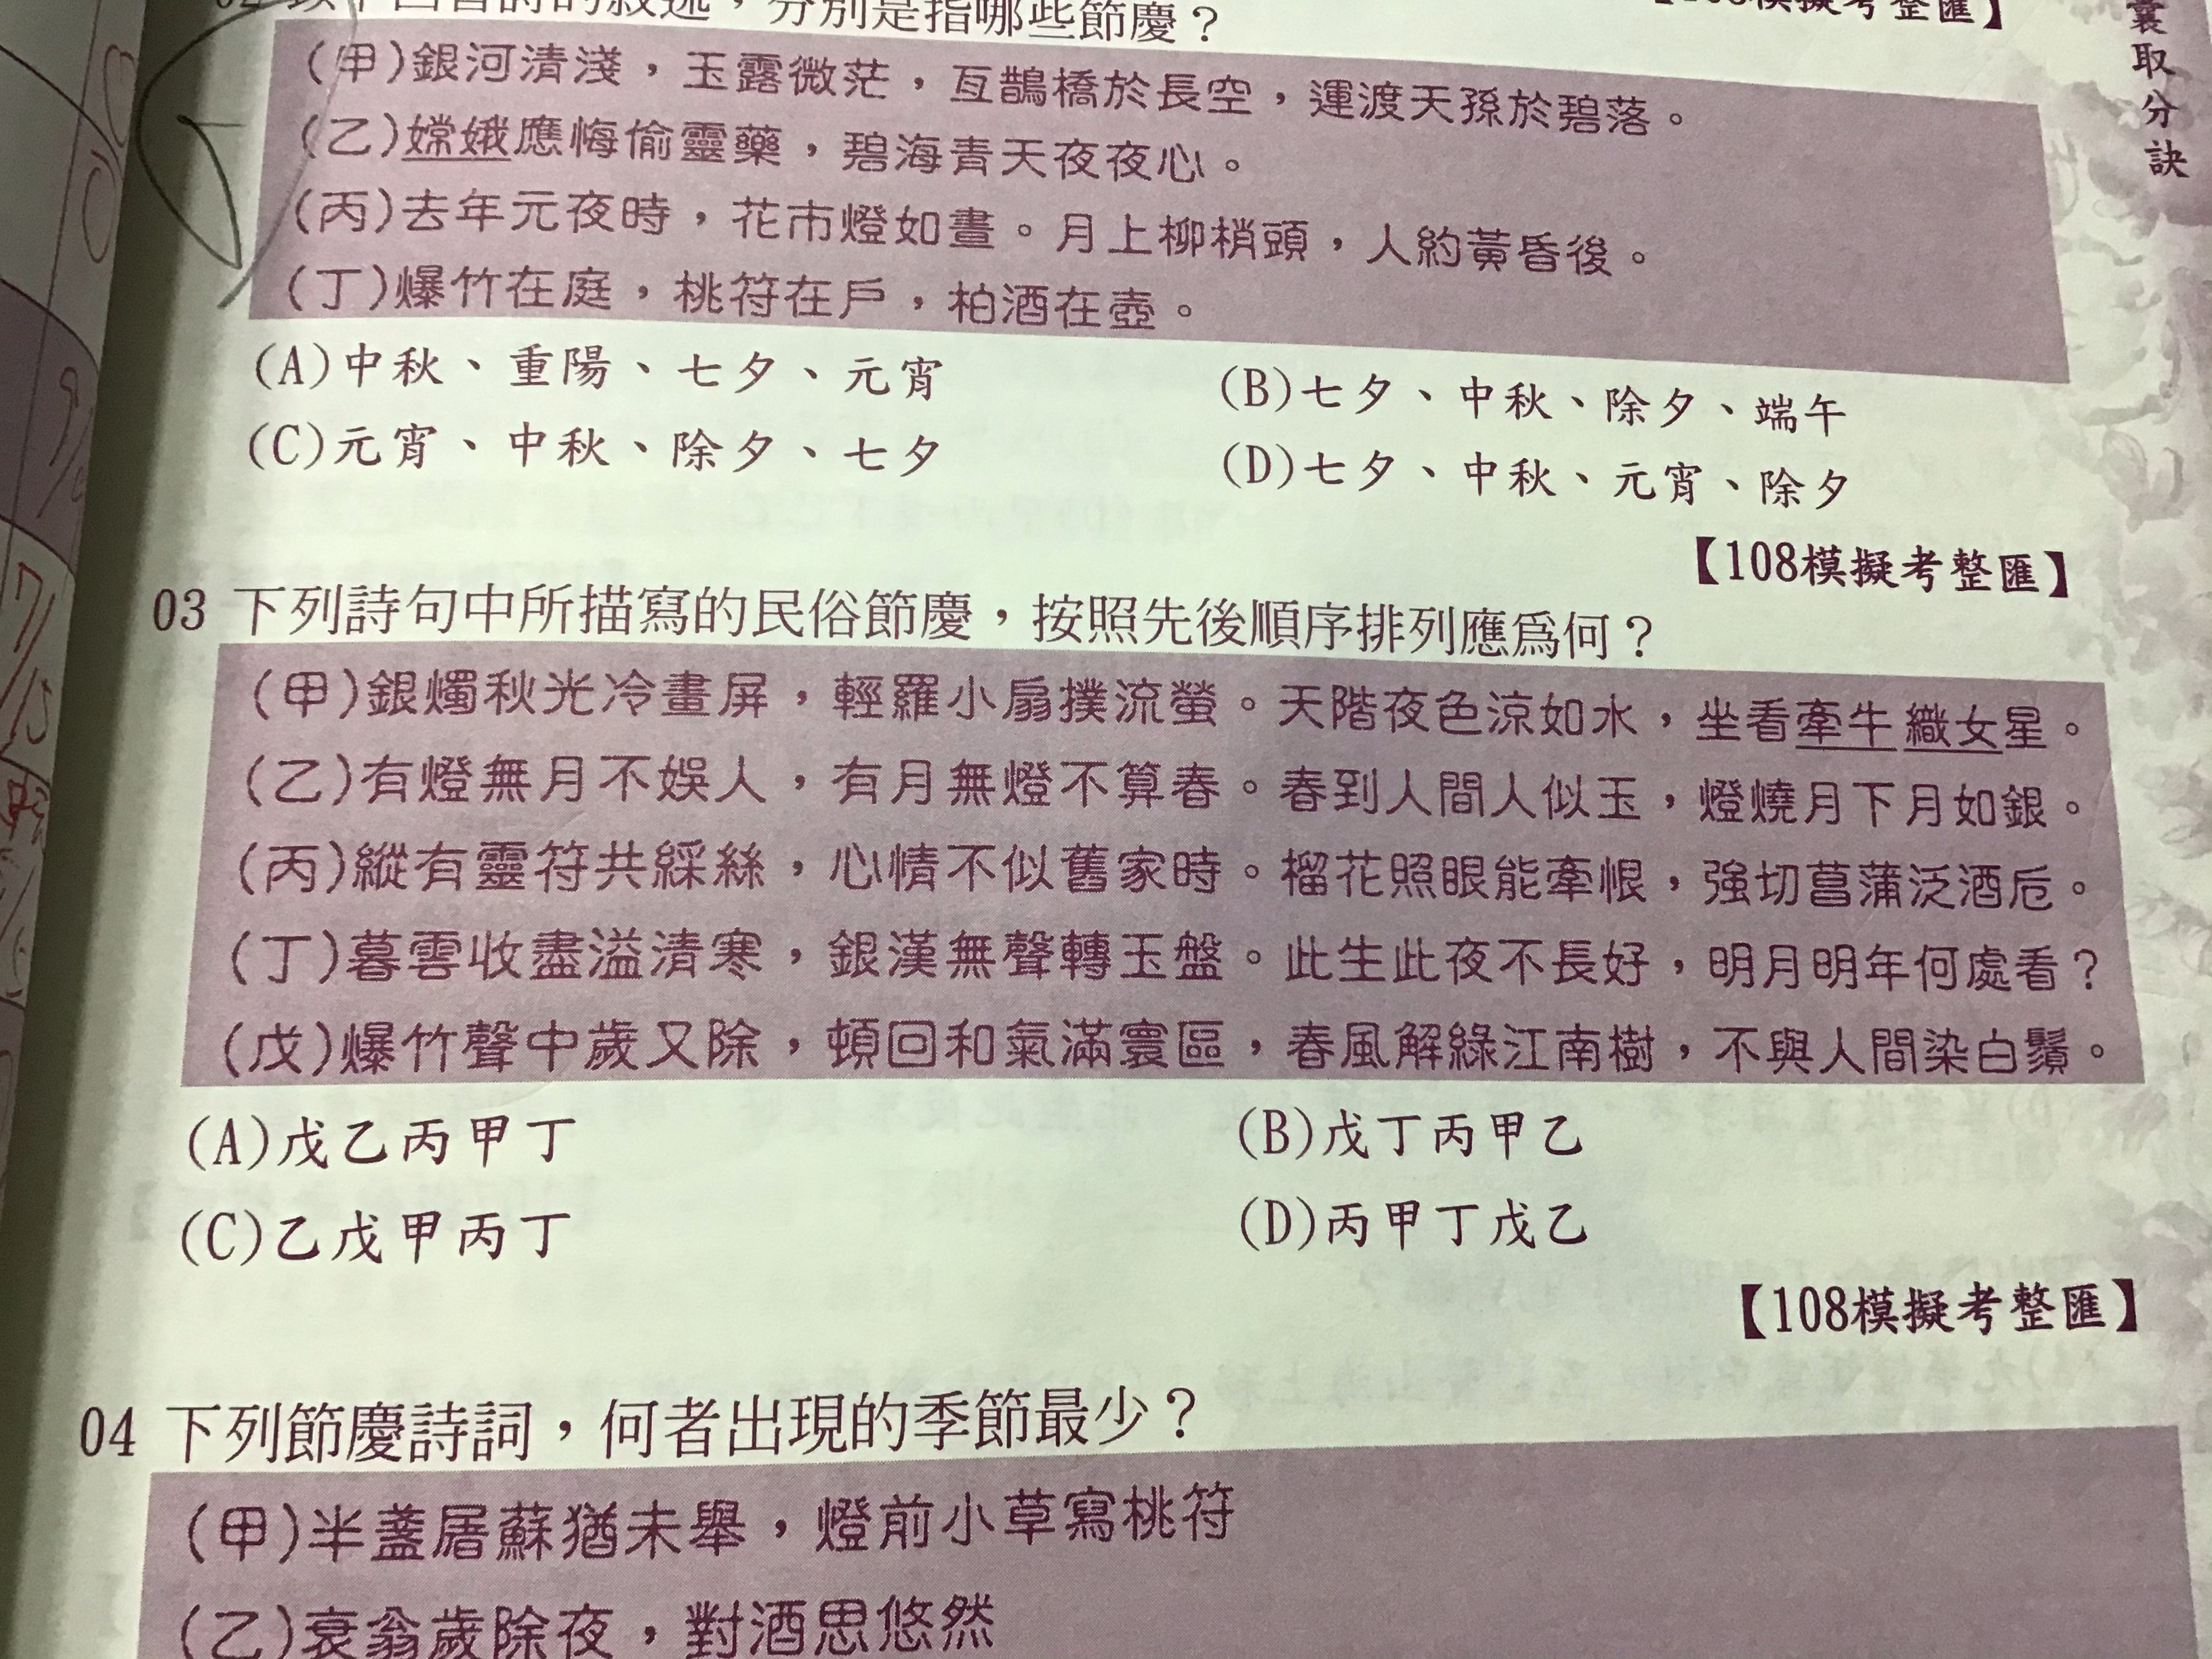 分別是指哪些節慶？
(甲)銀河清淺，玉露微茫，亙鵲橋於長空，運渡天孫於碧落。
(乙)嫦娥應悔偷靈藥，碧海青天夜夜心。
(丙)去年元夜時，花市燈如晝。月上柳梢頭，人約黃昏後。
(丁)爆竹在庭，桃符在戶，柏酒在壺。
(A)中秋、重陽、七夕、元宵
(B)七夕、中秋、除夕、端午
(C)元宵、中秋、除夕、七夕
(D)七夕、中秋、元宵、除夕
【108模擬考整匯】
03 下列詩句中所描寫的民俗節慶，按照先後順序排列應為何？
(甲)銀燭秋光冷畫屏，輕羅小扇撲流螢。天階夜色涼如水，坐看牽牛織女星。
(乙)有燈無月不娛人，有月無燈不算春。春到人間人似玉，燈燒月下月如銀。
(丙)縱有靈符共綵絲，心情不似舊家時。榴花照眼能牽恨，強切菖蒲泛酒卮。
(丁)暮雲收盡溢清寒，銀漢無聲轉玉盤。此生此夜不長好，明月明年何處看？
(戊)爆竹聲中歲又除，頓回和氣滿寰區，春風解綠江南樹，不與人間染白鬚。
(A)戊乙丙甲丁
(B)戊丁丙甲乙
(C)乙戊甲丙丁
(D)丙甲丁戊乙
【108模擬考整匯】
04 下列節慶詩詞，何者出現的季節最少？
(甲)半盞屠蘇猶未舉，燈前小草寫桃符
(乙)衰翁歲除夜，對酒思悠然
取分訣